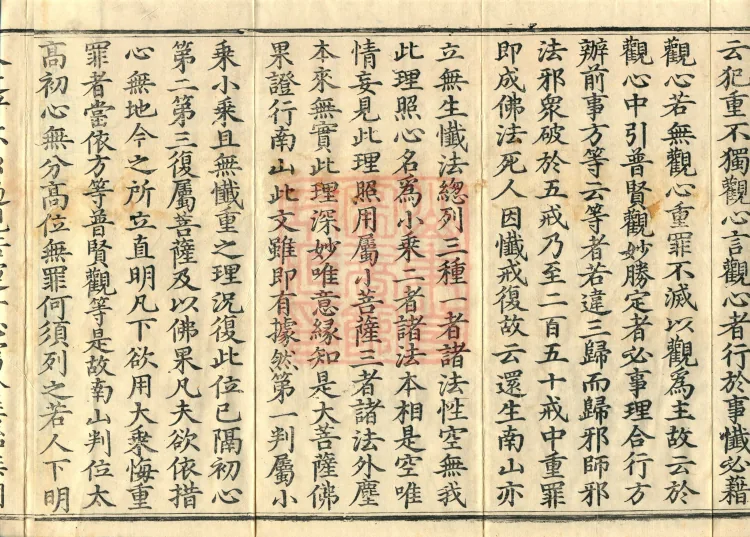 云犯重不獨觀心言觀心者行於事懺必藉
觀心若無觀心重罪不滅以觀爲主故云於
觀心中引普賢觀妙勝定者必事理合行方
辦前事方等云等者若違三歸而歸邪師邪
法邪衆破於五戒乃至二百五十戒中重罪
即成佛法死人因懺戒復故云還生南山亦
立無生懺法總列三種一者諸法性空無我
此理照心名爲小乘二者諸法本相是空唯
情妄見此理照用屬小菩薩三者諸法外塵
本來無實此理深妙唯意緣知是大菩薩佛
果證行南山此文雖即有據然第一判屬小
乘小乘且無懺重之理況復此位已隔初心
第二第三復屬菩薩及以佛果凡夫欲依措
心無地今之所立直明凡下欲用大乘悔重
罪者當依方等普賢觀等是故南山判位太
高初心無分高位無罪何須列之若人下明